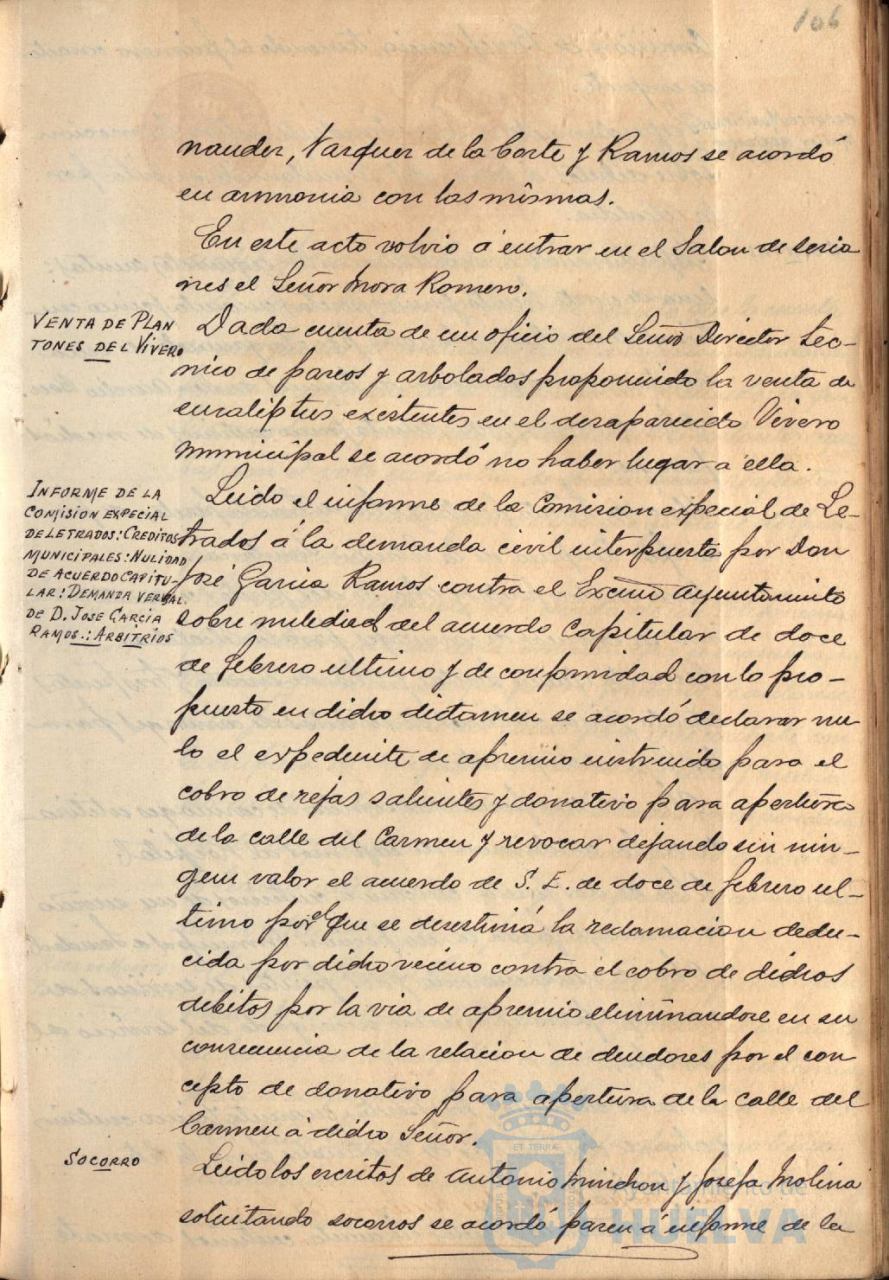 106
nandez, Vazquez de la Corte y Ramos se acordó
en armonia con las mismas.
En este acto volvio á entrar en el Salon de sesio
nes el Señor Mora Romero.
VENTA DE PLAN
TONES DEL VIVERO
Dada cuenta de un oficio del Señor Director tec-
nico de paseos y arbolados proponiendo la venta de
eucaliptus existentes en el desaparecido Vivero
municipal se acordó no haber lugar a ella.
INFORME DE LA
COMISION EXPECIAL
DE LETRADOS: CREDITOS
MUNICIPALES: NULIDAD
DE ACUERDO CAPITU-
LAR: DEMANDA VERBAL
DE D. JOSE GARCIA
RAMOS.: ARBITRIOS
Leido el informe de la Comision expecial de Le-
trados á la demanda civil interpuesta por Don
José Garcia Ramos contra el Excmo Ayuntamiento
sobre nulidad del acuerdo Capitular de doce
de febrero ultimo y de conformidad con lo pro-
puesto en dicho dictamen se acordó declarar nu-
lo el expediente de apremio instruido para el
cobro de rejas salientes y donativo para apertura
de la calle del Carmen y revocar dejando sin nin-
gun valor el acuerdo de S. E. de doce de febrero ul-
timo por el que se desestimá la reclamacion dedu-
cida por dicho vecino contra el cobro de dichos
debitos por la via de apremio eliminandose en su
consecuencia de la relacion de deudores por el con
cepto de donativo para apertura de la calle del
Carmen á dicho Señor.
SOCORRO
Leido los escritos de Antonio Minchon y Josefa Molina
solicitando socorros se acordó pasen á informe de la
ET TERRÆ
Ayuntamiento de
HUELVA